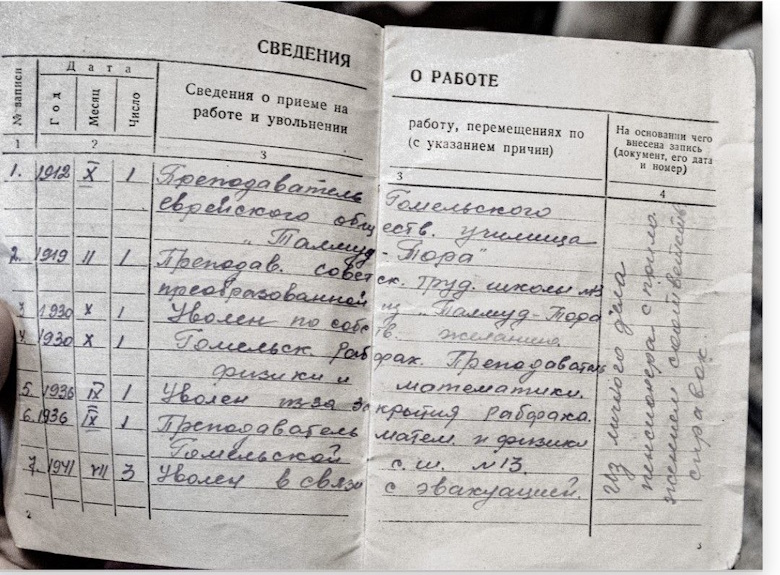 СВЕДЕНИЯ О РАБОТЕ
№ записи
Дата
Год
Месяц
Число
Сведения о приеме на
работе и увольнении
работу, перемещениях по
(с указанием причин)
На основании чего
внесена запись
(документ, его дата
и номер)
1 2 3 3 4
1. 1912 X 1 Преподаватель Гомельского
еврейского обществ. училища
„Талмуд-Тора"
2. 1919 II 1 Преподав. советск. труд. школы №13
преобразованной из „Талмуд-Тора
3 1930 X 1 Уволен по собств. желанию.
4. 1930 X 1 Гомельск. рабфак. Преподаватель
физики и математики.
5. 1936 IX 1 Уволен из-за закрытия рабфака.
6. 1936 IX 1 Преподаватель матем. и физики
Гомельской с.ш. №13.
7. 1941 VII 3 Уволен в связи с эвакуацией.
Из личного дела
пенсионера с прило
жением
справок.
2
3